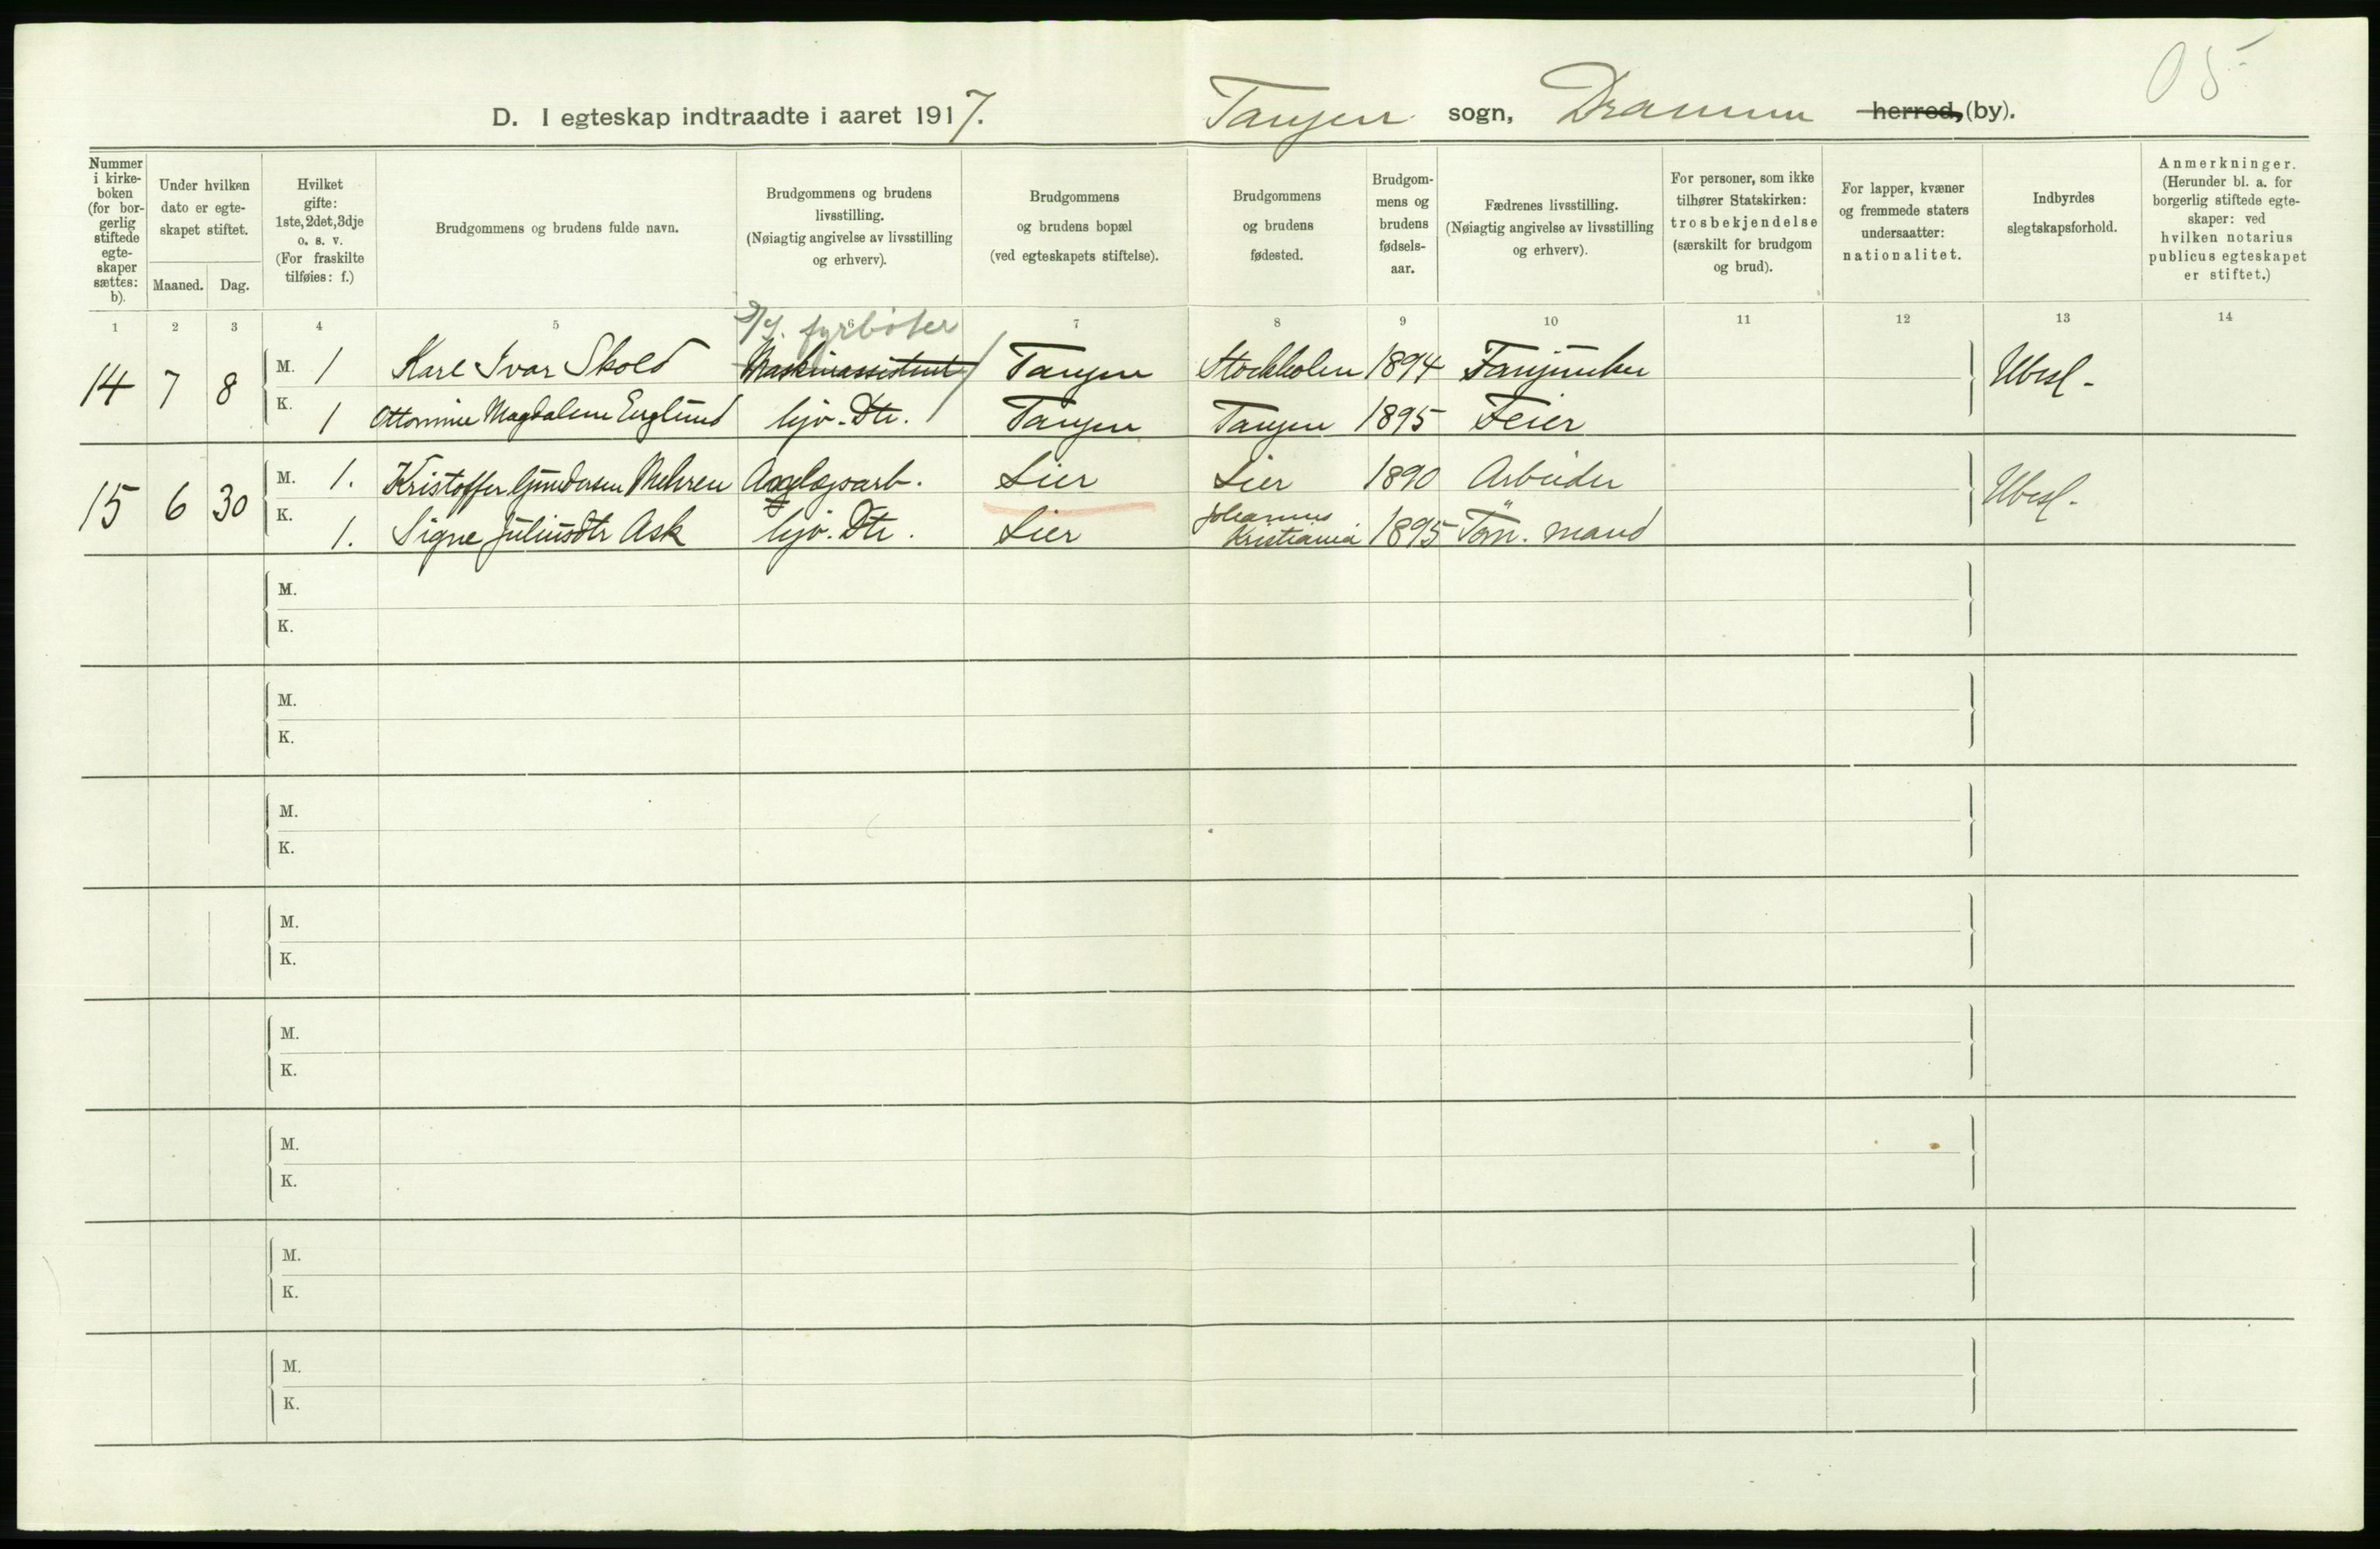 05
D. I egteskap indtraadte i aaret 1917. Tangen sogn, Drammen herred, (by).
Nummer i kirke-boken (for bor-gerlig stiftede egte-skaper sættes: b).
Under hvilken dato er egte-skapet stiftet.
Maaned. Dag.
Hvilket gifte: 1ste, 2det, 3dje o. s. v. (For fraskilte tilføies: f.)
Brudgommens og brudens fulde navn.
Brudgommens og brudens livsstilling. (Nøiagtig angivelse av livsstilling og erhverv).
Brudgommens og brudens bopæl (ved egteskapets stiftelse).
Brudgommens og brudens fødested.
Brudgom-mens og brudens fødsels-aar.
Fædrenes livsstilling. (Nøiagtig angivelse av livsstilling og erhverv).
For personer, som ikke tilhører Statskirken: trosbekjendelse (særskilt for brudgom og brud).
For lapper, kvæner og fremmede staters undersaatter: nationalitet.
Indbyrdes slegtskapsforhold.
Anmerkninger. (Herunder bl. a. for borgerlig stiftede egte-skaper: ved hvilken notarius publicus egteskapet er stiftet.)
1 2 3 4 5 6 7 8 9 10 11 12 13 14
fyrbøter
14 7 8 M. 1 Karl Ivar Skold Maskinassistent Tangen Stockholm 1894 Ubesl.
K. 1 Ottomine Magdalene Englund hjv. Dtr. Tangen Tangen 1895 Feier
15 6 30 M. 1. Kristoffer Gundersen Mehren Anglegsarb. Lier Lier 1890 Arbeider Ubesl.
K. 1. Signe Juliusdtr Ask hjv. Dtr. Lier Johannes Kristiania 1895 Töm. mand
M.
K.
M.
K.
M.
K.
M.
K.
M.
K.
M.
K.
M.
K.
M.
K.